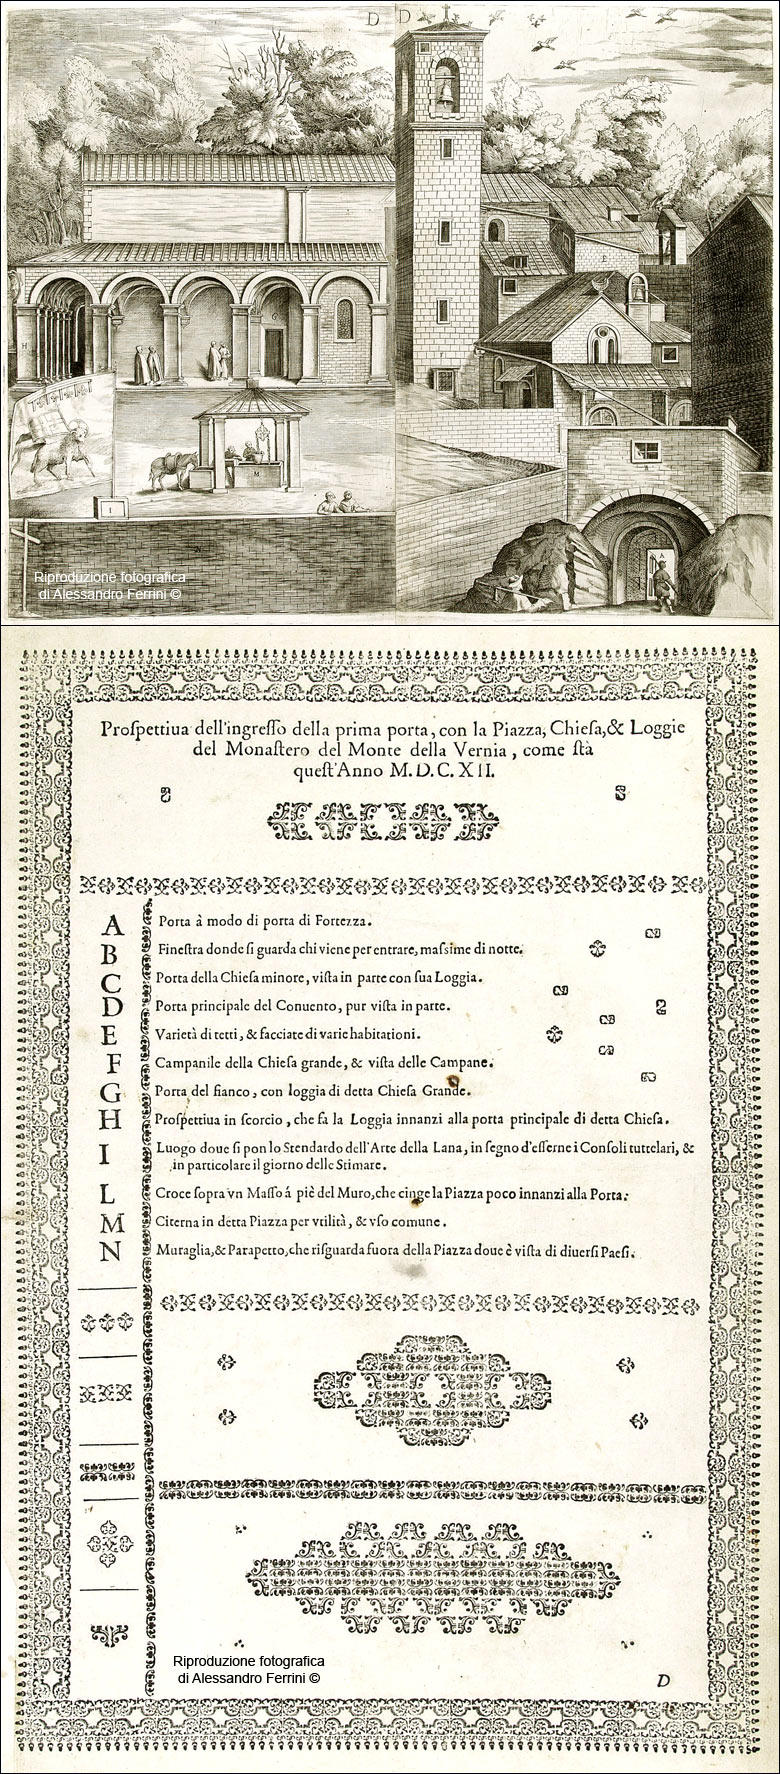 D D
G
E
H
F
M
I
B
N
A
Riproduzione fotografica
di Alessandro Ferrini ©
Proſpettiua dell'ingreſſo della prima porta, con la Piazza, Chieſa, & Loggie
del Monaſtero del Monte della Vernia, come ſtà
queſt'Anno M. D. C. XII.
A Porta à modo di porta di Fortezza.
B Fineſtra donde ſi guarda chi viene per entrare, maſsime di notte.
C Porta della Chieſa minore, viſta in parte con ſua Loggia.
D Porta principale del Conuento, pur viſta in parte.
E Varietà di tetti, & facciate di varie habitationi.
F Campanile della Chieſa grande, & viſta delle Campane.
G Porta del fianco, con loggia di detta Chieſa Grande.
H Proſpettiua in ſcorcio, che fa la Loggia innanzi alla porta principale di detta Chieſa.
I Luogo doue ſi pon lo Stendardo dell'Arte della Lana, in ſegno d'eſſerne i Conſoli tuttelari, &
in particolare il giorno delle Stimate.
L Croce ſopra vn Maſſo á piè del Muro, che cinge la Piazza poco innanzi alla Porta.
M Citerna in detta Piazza per vtilità, & vſo comune.
N Muraglia, & Parapetto, che riſguarda fuora della Piazza doue è viſta di diuerſi Paeſi.
Riproduzione fotografica
di Alessandro Ferrini ©
D